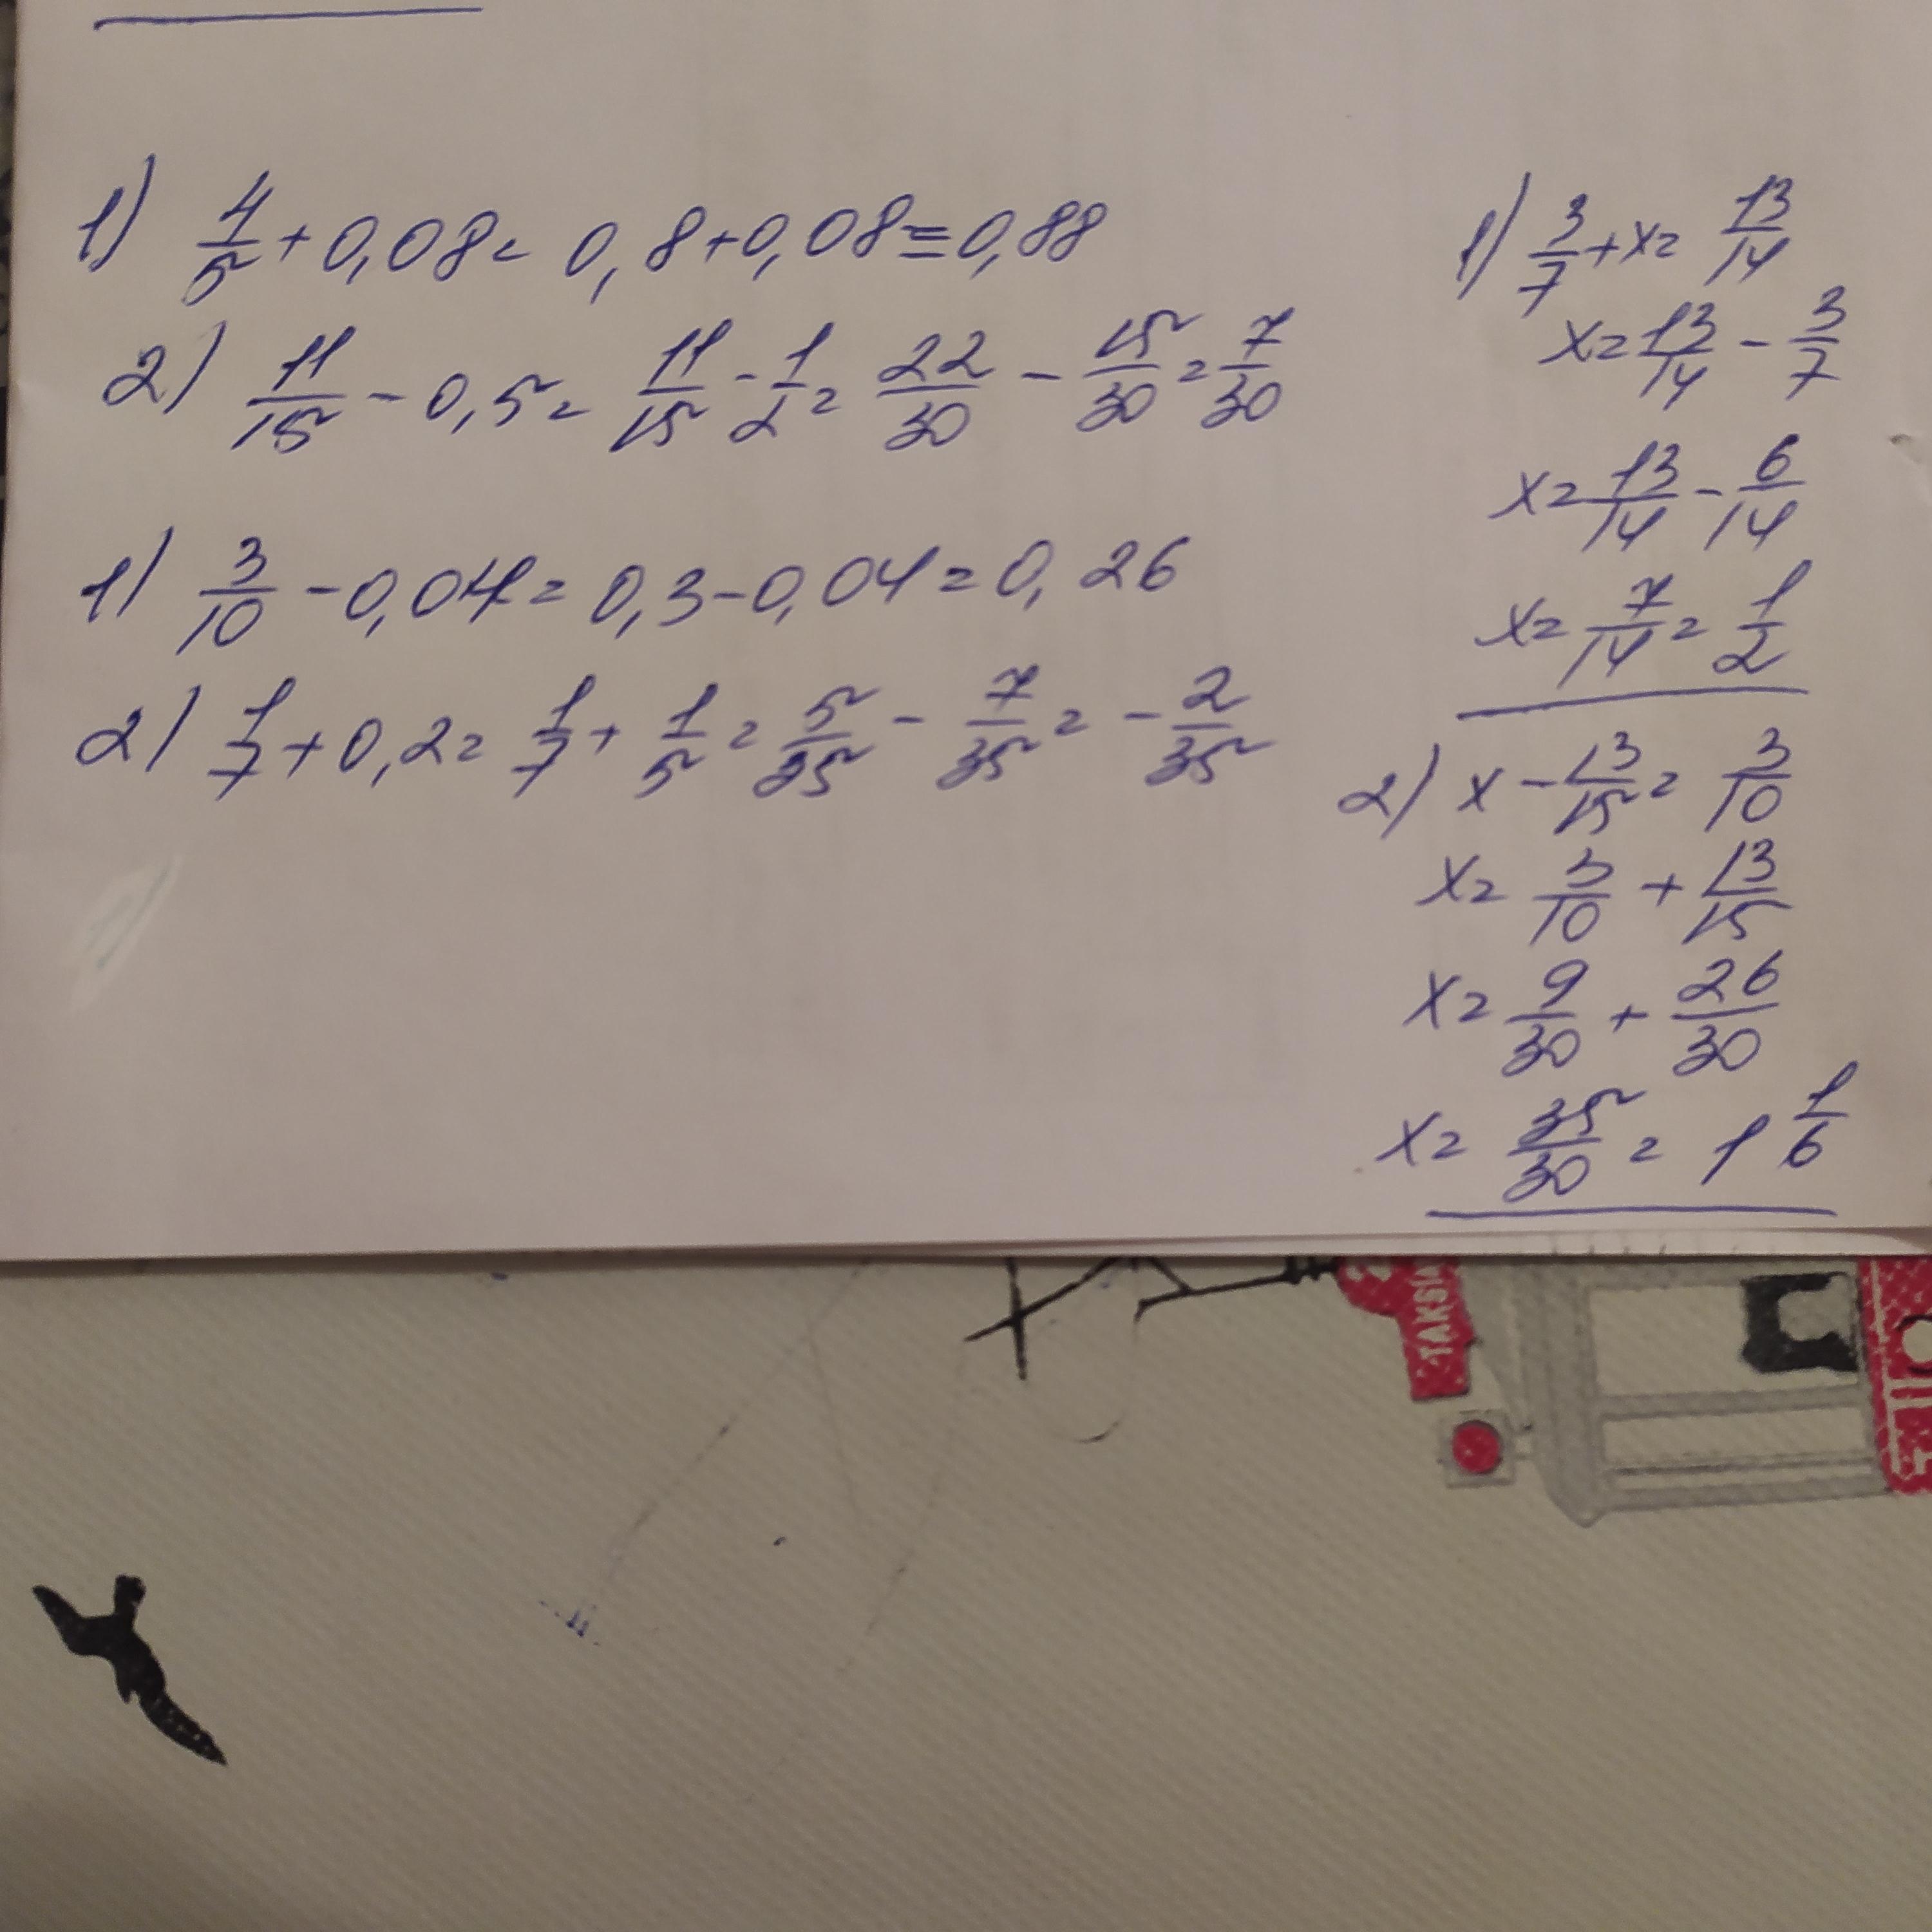 1) 4/5 + 0,08 = 0,8 + 0,08 = 0,88
2) 11/15 - 0,5 = 11/15 - 1/2 = 22/30 - 15/30 = 7/30
1) 3/10 - 0,04 = 0,3 - 0,04 = 0,26
2) 1/7 + 0,2 = 1/7 + 1/5 = 5/35 - 7/35 = - 2/35
1) 3/7 + x = 13/14
x = 13/14 - 3/7
x = 13/14 - 6/14
x = 7/14 = 1/2
2) x - 13/15 = 3/10
x = 3/10 + 13/15
x = 9/30 + 26/30
x = 35/30 = 1 1/6
TAKSI